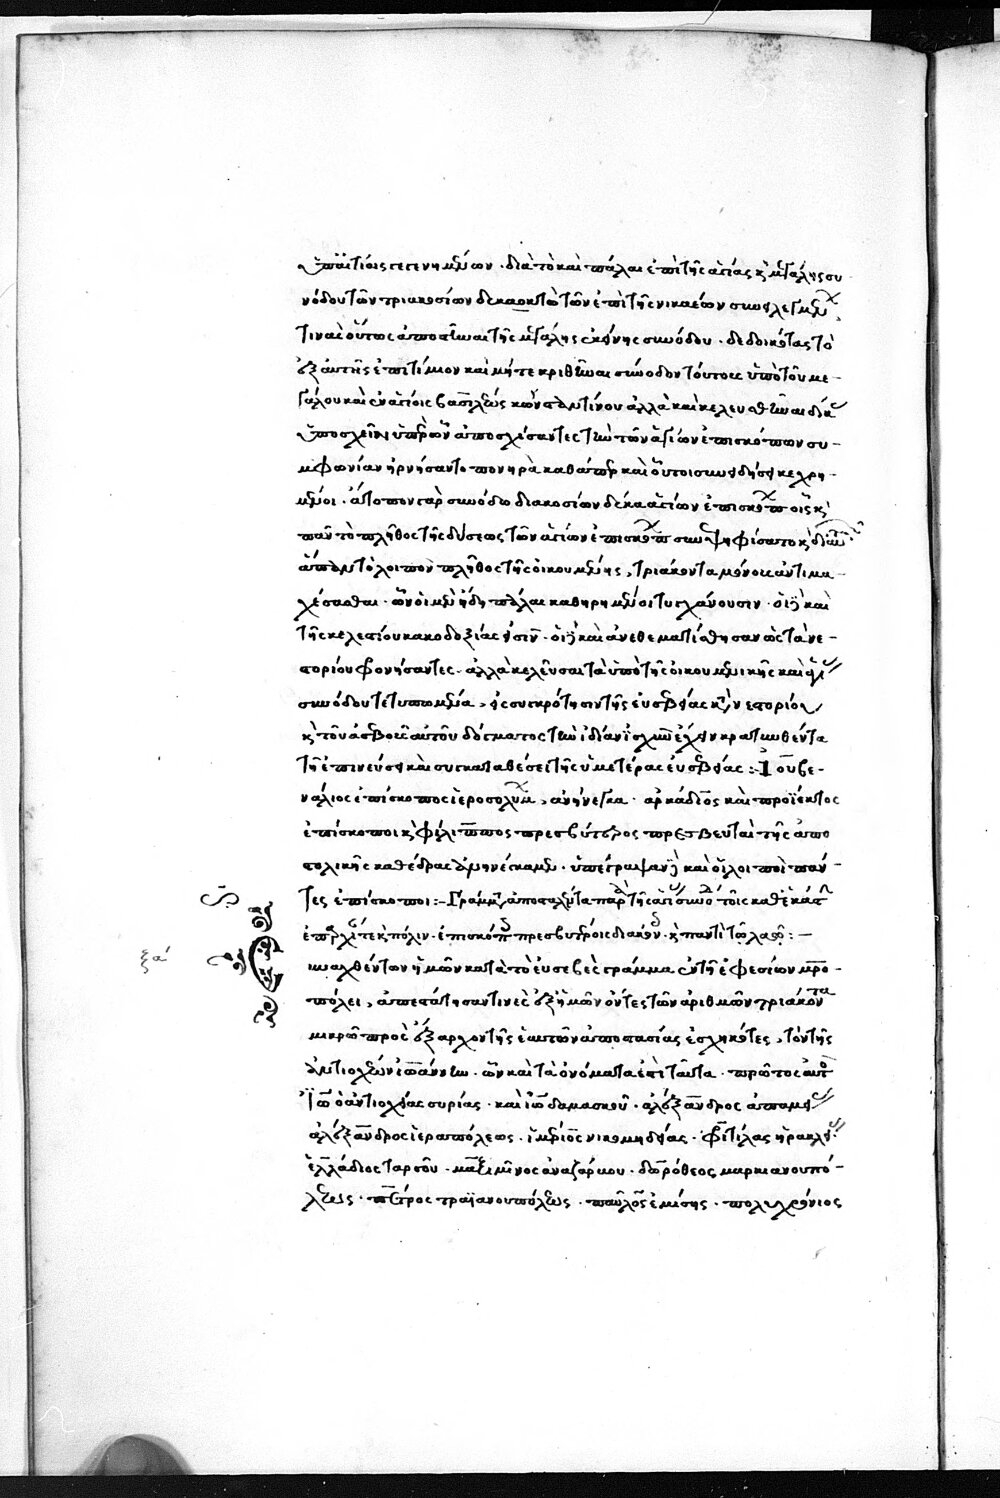 ὑπαιτίοις γεγενημένων · διὰ τὸ καὶ πάλαι ἐπὶ τῆς ἁγίας κ(αὶ) μεγάλης συ
νόδου τῶν τριακοσίων δεκαοκτὼ τῶν ἐπὶ τῆς νικαέων συνειλεγμέν
τινὰς οὕτως ἀποστῆναι τῆς μεγάλης ἐκείνης συνόδου · δεδοικότας τὸ
ἐξ αὐτῆς ἐπιτίμιον καὶ μήτε κριθῆναι σύνοδον τούτους ὑπὸ τοῦ με-
γάλου καὶ ἐν ἁγίοις βασιλέως κωνσταντίνου ἀλλὰ καὶ κελευσθῆναι δίκ
ὑποσχεῖν ὑπὲρ ὧν ἀποσχίσαντες τὴν τῶν ἁγίων ἐπισκόπων συ-
μφωνίαν ἠρνήσαντο πονηρὰ καθάπερ καὶ οὗτοι συνειδήσει κεχρη
μένοι · ἄτοπον γὰρ συνόδω διακοσίων δέκα ἁγίων ἐπισκόπ οἷς κ(αὶ)
πᾶν τὸ πλῆθος τῆς δύσεως τῶν ἁγίων ἐπισκόπ συνεψηφίσατο κ(αὶ) δι αὐ
ἅπαν τὸ λοιπὸν πλῆθος τῆς οἰκουμένης, τριάκοντα μόνους ἀντιμα-
χέσασθαι · ὧν οἱ μὲν ἤδη πάλαι καθηρημένοι τυγχάνουσιν · οἱ δὲ καὶ
τῆς κελεστίου κακοδοξίας εἰσίν · οἱ δὲ καὶ ἀνεθεματίσθησαν ὡς τὰ νε-
στορίου φρονήσαντες · ἀλλὰ κελεῦσαι τὰ ὑπὸ τῆς οἰκουμενικῆς καὶ ἁγί
συνόδου τετυπωμένα, εἰς συγκρότησιν τῆς εὐσεβείας κατὰ νεστορίου
κ(αὶ) τοῦ ἀσεβοῦς αὐτοῦ δόγματος τὴν ἰδίαν ἰσχὺν ἔχειν κρατυνθέντα
τῆ ἐπινεύσει καὶ συγκαταθέσει τῆς ὑμετέρας εὐσεβείας :- Ἰουβε-
νάλιος ἐπίσκοπος ἱεροσολύμ, ἀνήνεγκα · ἀρκάδιος καὶ προϊέκτος
ἐπίσκοποι κ(αὶ) φίλιππος πρεσβύτερος πρεσβευταὶ τῆς ἀπο
στολικῆς καθέδρας ἀνηνέγκαμεν · ὑπέγραψαν δὲ καὶ οἱ λοιποὶ πάν-
τες ἐπίσκοποι :- Γράμμ ἀποσταλέντα παρὰ τῆς ἁγί συνόδ τοῖς καθ᾽ ἑκάστ
ἐπαρχί τε κ(αὶ) πόλιν · ἐπισκόπ πρεσβυτέροις διακόν · κ(αὶ) παντὶ τῶ λαῶ :-
ξα΄
Συναχθέντων ἡμῶν κατὰ τὸ εὐσεβὲς γράμμα ἐν τῆ ἐφεσίων μητρο-
πόλει, ἀπέστησάν τινες ἐξ ἡμῶν ὄντες τὸν ἀριθμὸν τριάκοντα
μικρῶ πρὸς ἔξαρχον τῆς ἑαυτῶν ἀποστασίας ἐσχηκότες, τὸν τῆς
ἀντιοχέων ἰωάννην · ὧν καὶ τὰ ὀνόματα ἐστὶ ταῦτα · πρῶτος αὐτὸ
Ἰω ὁ ἀντιοχείας συρίας · καὶ ἰω δαμασκοῦ · ἀλέξανδρος ἀπαμεί
ἀλέξανδρος ἱεραπόλεως · ἱμέριος νικομηδείας · φριτίλας ἡρακλεί
ἑλλάδιος ταρσοῦ · μαξιμῖνος ἀναζάρβου · δωρόθεος μαρκιανουπό-
λεως · πέτρος τραϊανουπόλεως · παῦλος ἐμίσης · πολυχρόνιος